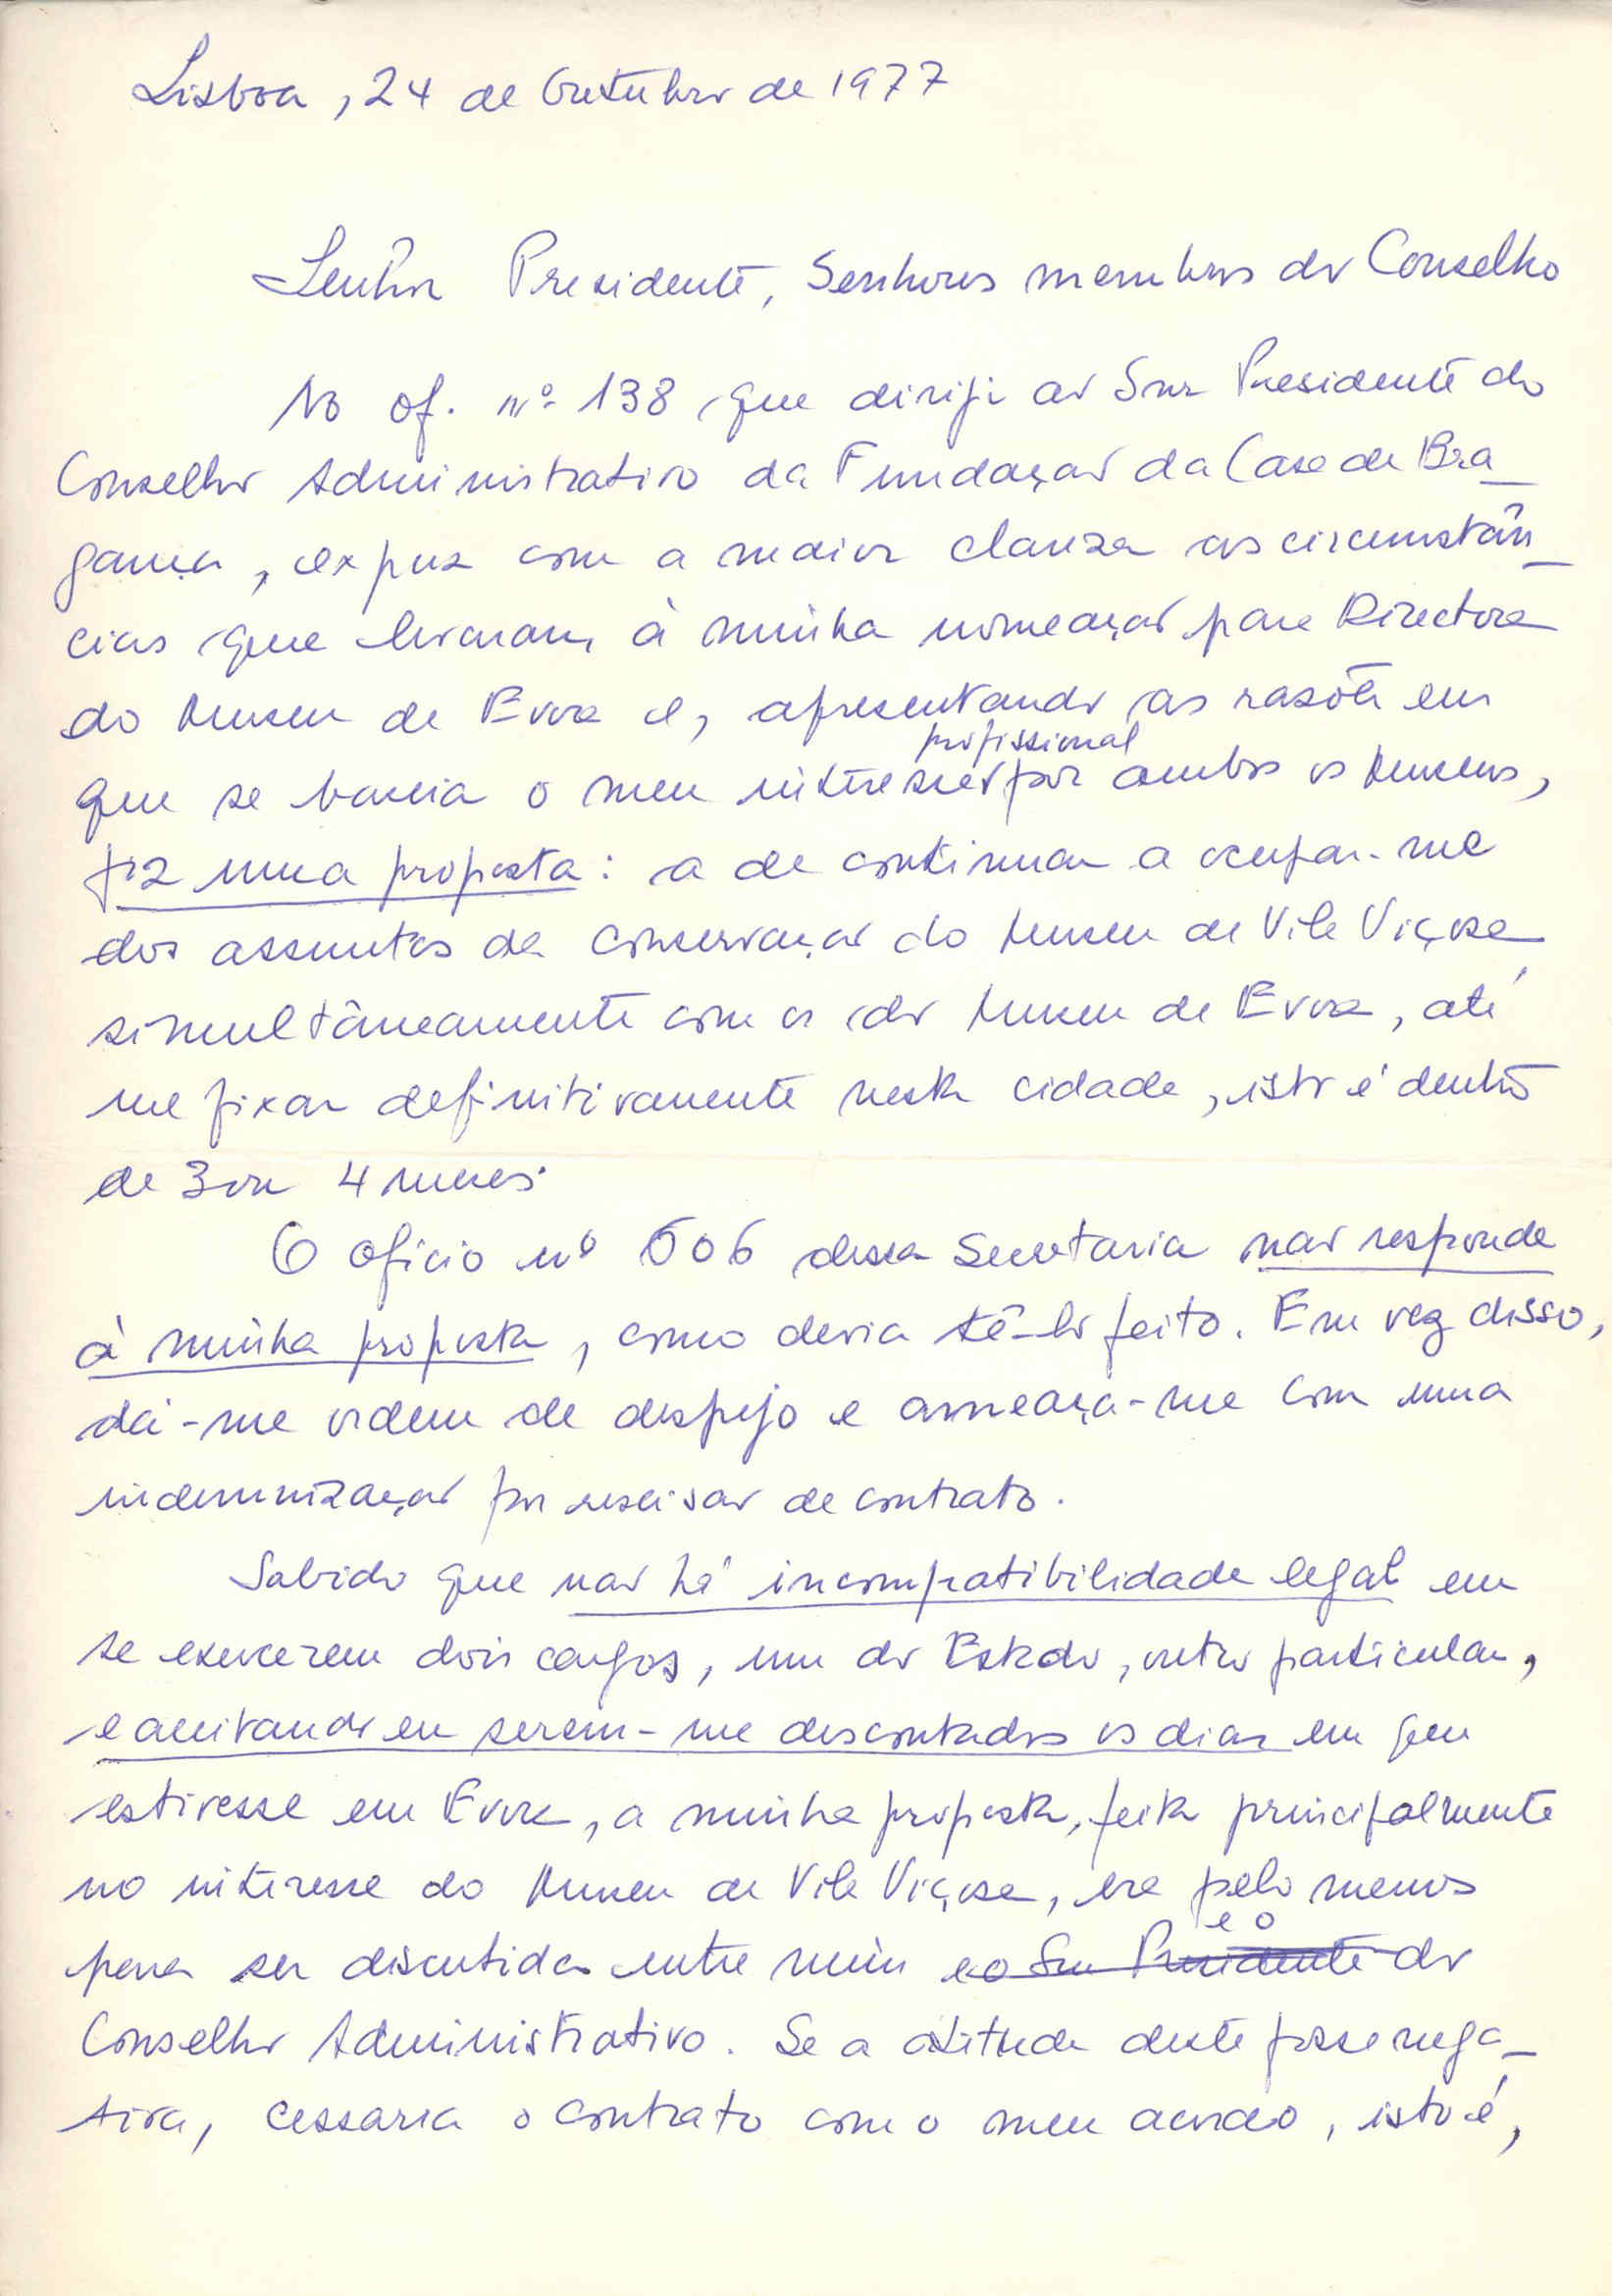 Lisboa, 24 de Outubro de 1977
Senhor Presidente, Senhores membros do Conselho
No of. nº 138 que dirigi ao Snr Presidente do
Conselho Administrativo da Fundação da Casa de Bra_
gança, expuz com a maior clareza as circunstân_
cias que levaram à minha nomeação para Directora
do Museu de Evora e, apresentando as razões em
profissional
que se baseia o meu interesse por ambos os Museus,
fiz uma proposta: a de continuar a ocupar-me
dos assuntos da conservação do Museu de Vila Viçosa
simultâneamente com os do Museu de Evora, até
me fixar definitivamente nesta cidade, isto é dentro
de 3 ou 4 meses.
O oficio nº 606 dessa Secretaria não responde
à minha proposta, como devia tê-lo feito. Em vez disso,
dá-me ordem de despejo e ameaça-me com uma
indemnização por rescisão de contrato.
Sabido que não há incompatibilidade legal em
se exercerem dois cargos, um do Estado, outro particular,
e aceitando eu serem-me descontados os dias em que
estivesse em Evora, a minha proposta, feita principalmente
no interesse do Museu de Vila Viçosa, era pelo menos
e o
para ser discutida entre mim e o Snr Presidente do
Conselho Administrativo. Se a atitude deste fosse nega_
tiva, cessaria o contrato com o meu acordo, isto é,